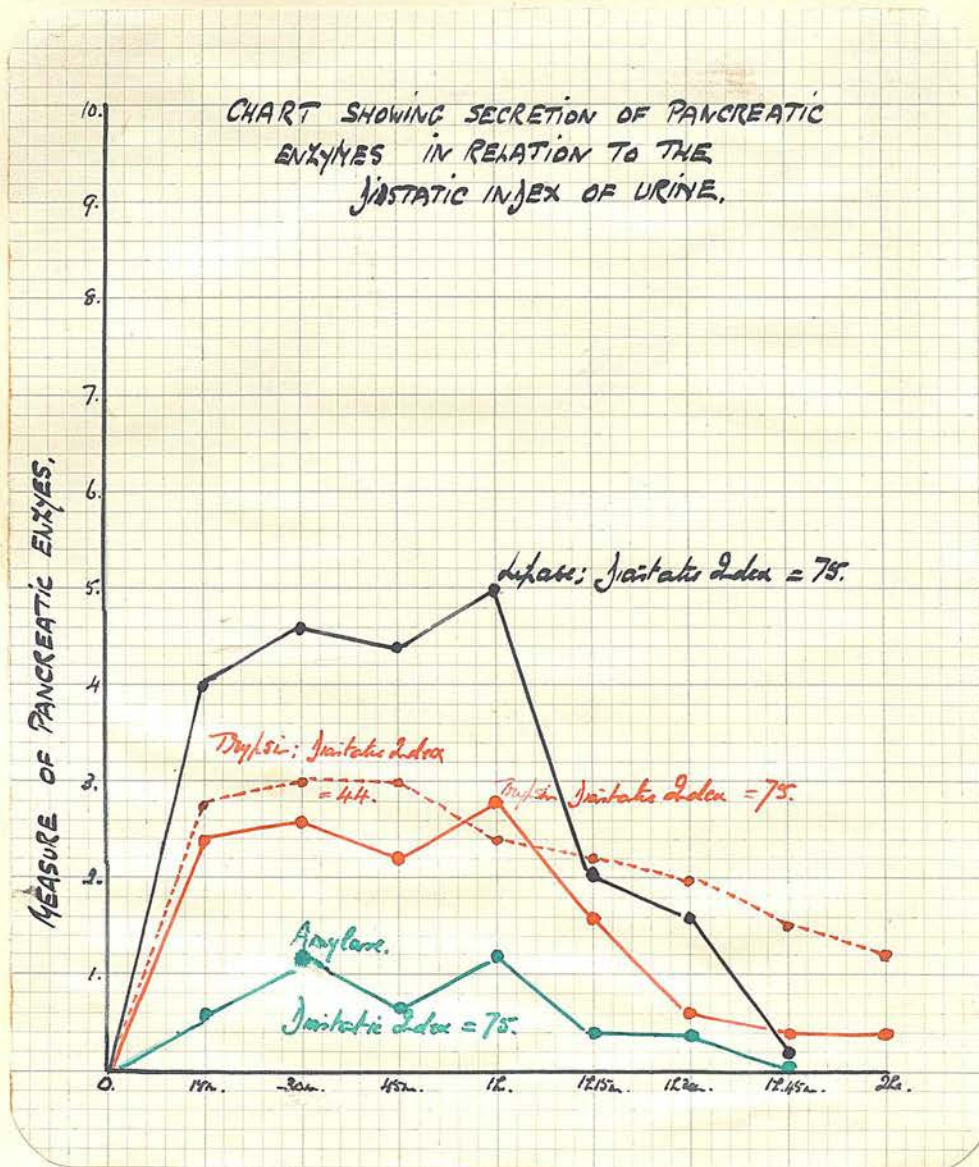 CHART SHOWING SECRETION OF PANCREATIC
ENZYMES IN RELATION TO THE
DIASTATIC INDEX OF URINE.
10.
9.
8.
7.
6.
5.
4
3.
2.
1.
MEASURE OF PANCREATIC ENZYES.
Lipase: Diastatic Index = 75.
Trypsin: Diastatic Index
= 44.
Trypsin Diastatic Index = 75.
Amylase.
Diastatic Index = 75.
0. 15m. 30m. 45m. 1h. 1h.15m. 1h.30m. 1h.45m. 2hr.